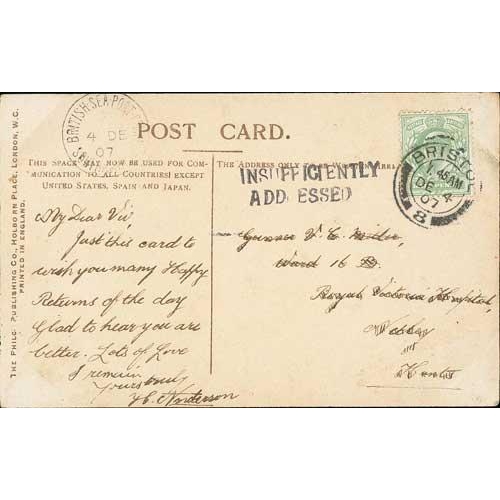 THE PHILCO PUBLISHING CO., HOLBORN PLACE, LONDON, W.C.
PRINTED IN ENGLAND.
BRITISH·SEA·POST
4 DE
07
POST CARD.
THIS SPACE MAY NOW BE USED FOR COM-
MUNICATION TO ALL COUNTRIES EXCEPT
UNITED STATES, SPAIN AND JAPAN.
THE ADDRESS ONLY TO BE
INSUFFICIENTLY
ADDRESSED
BRISTOL
45AM
DE 4
07
8
My Dear Viv
Just this card to
wish you many Happy
Returns of the day
Glad to hear you are
better. Lots of Love
I remain
Yours truly
Anderson
Gunner V. C.
Ward 16
Royal Victoria Hospital,
Netley
Hants